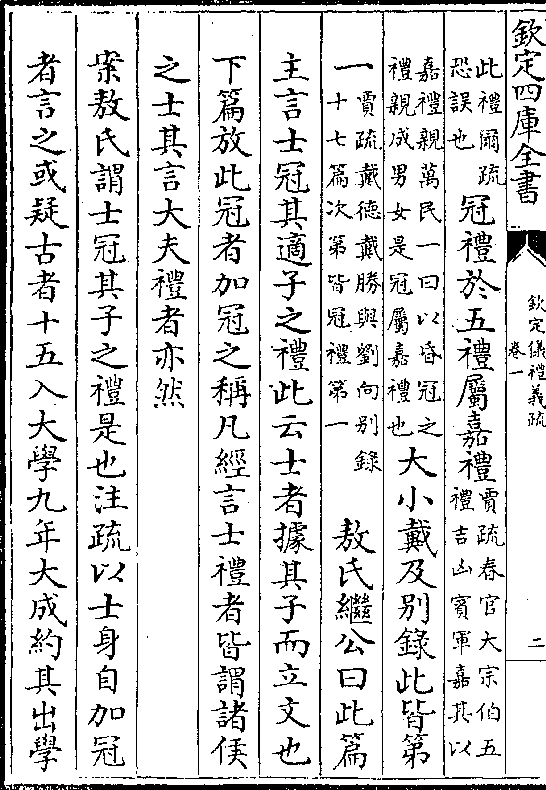 欽定四庫全書
欽定儀禮義疏
卷一
二
此禮爾疏
恐誤也
冠禮於五禮屬嘉禮
賈疏春官大宗伯五
禮吉凶賓軍嘉其以
嘉禮親萬民一曰以昏冠之
禮親成男女是冠屬嘉禮也
大小戴及別錄此皆第
一
賈疏戴德戴勝與劉向別錄
十七篇次第皆冠禮第一
敖氏繼公曰此篇
主言士冠其適子之禮此云士者據其子而立文也
下篇放此冠者加冠之稱凡經言士禮者皆謂諸侯
之士其言大夫禮者亦然
案敖氏謂士冠其子之禮是也注疏以士身自加冠
者言之或疑古者十五入大學九年大成約其出學